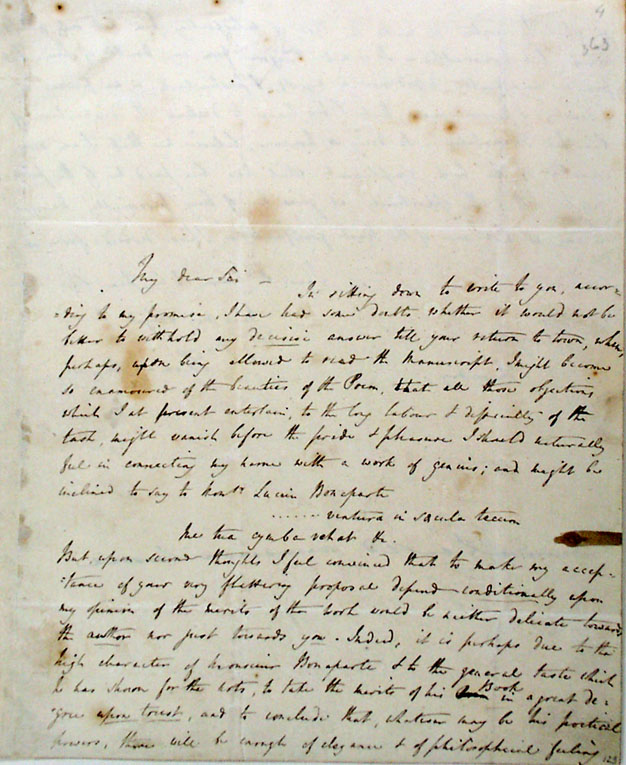 4
363
My dear Sir — In sitting down to write to you, accor-
-ding to my promise, I have had some doubts, whether it would not be
better to withhold any decisive answer till your return to town, when,
perhaps, upon being allowed to read the Manuscript, I might become
so enamoured of the beauties of the Poem, that all those objections
which I at present entertain, to the long labour & difficulty of the
task, might vanish before the pride & pleasure I should naturally
feel in connecting my name with a work of genius; and might be
inclined to say to Monsr. Lucien Bonaparte
...... ventura in sæcula tecum
Me tua cymba vehat &c.
But, upon second thoughts I feel convinced that to make my accep-
-tance of your very flattering proposal depend conditionally upon
my opinion of the merits of the book would be neither delicate towards
the author nor just towards you. Indeed, it is perhaps due to the
high character of Monsieur Bonaparte & to the general taste which
he has shown for the arts, to take the merits of his Book in a great de-
-gree upon trust, and to conclude that, whatever may be his poetical
powers, there will be enough of elegance & of philosophical feeling
123